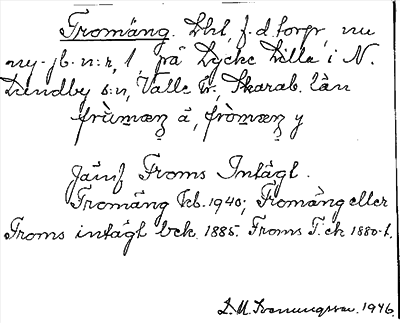 Fromäng. Lht, f.d. torp, nu
ny-jb. n:r, 1, på Dycke Lilla i N.
Lundby s:n, Valle hr, Skarab. län
frùmæŋ ä, fròmæŋ y
Jämf Froms Intägt.
Fromäng Kb. 1940; Fromäng eller
Froms intägt bek. 1885. Froms T. ek 1880-t.
1946.